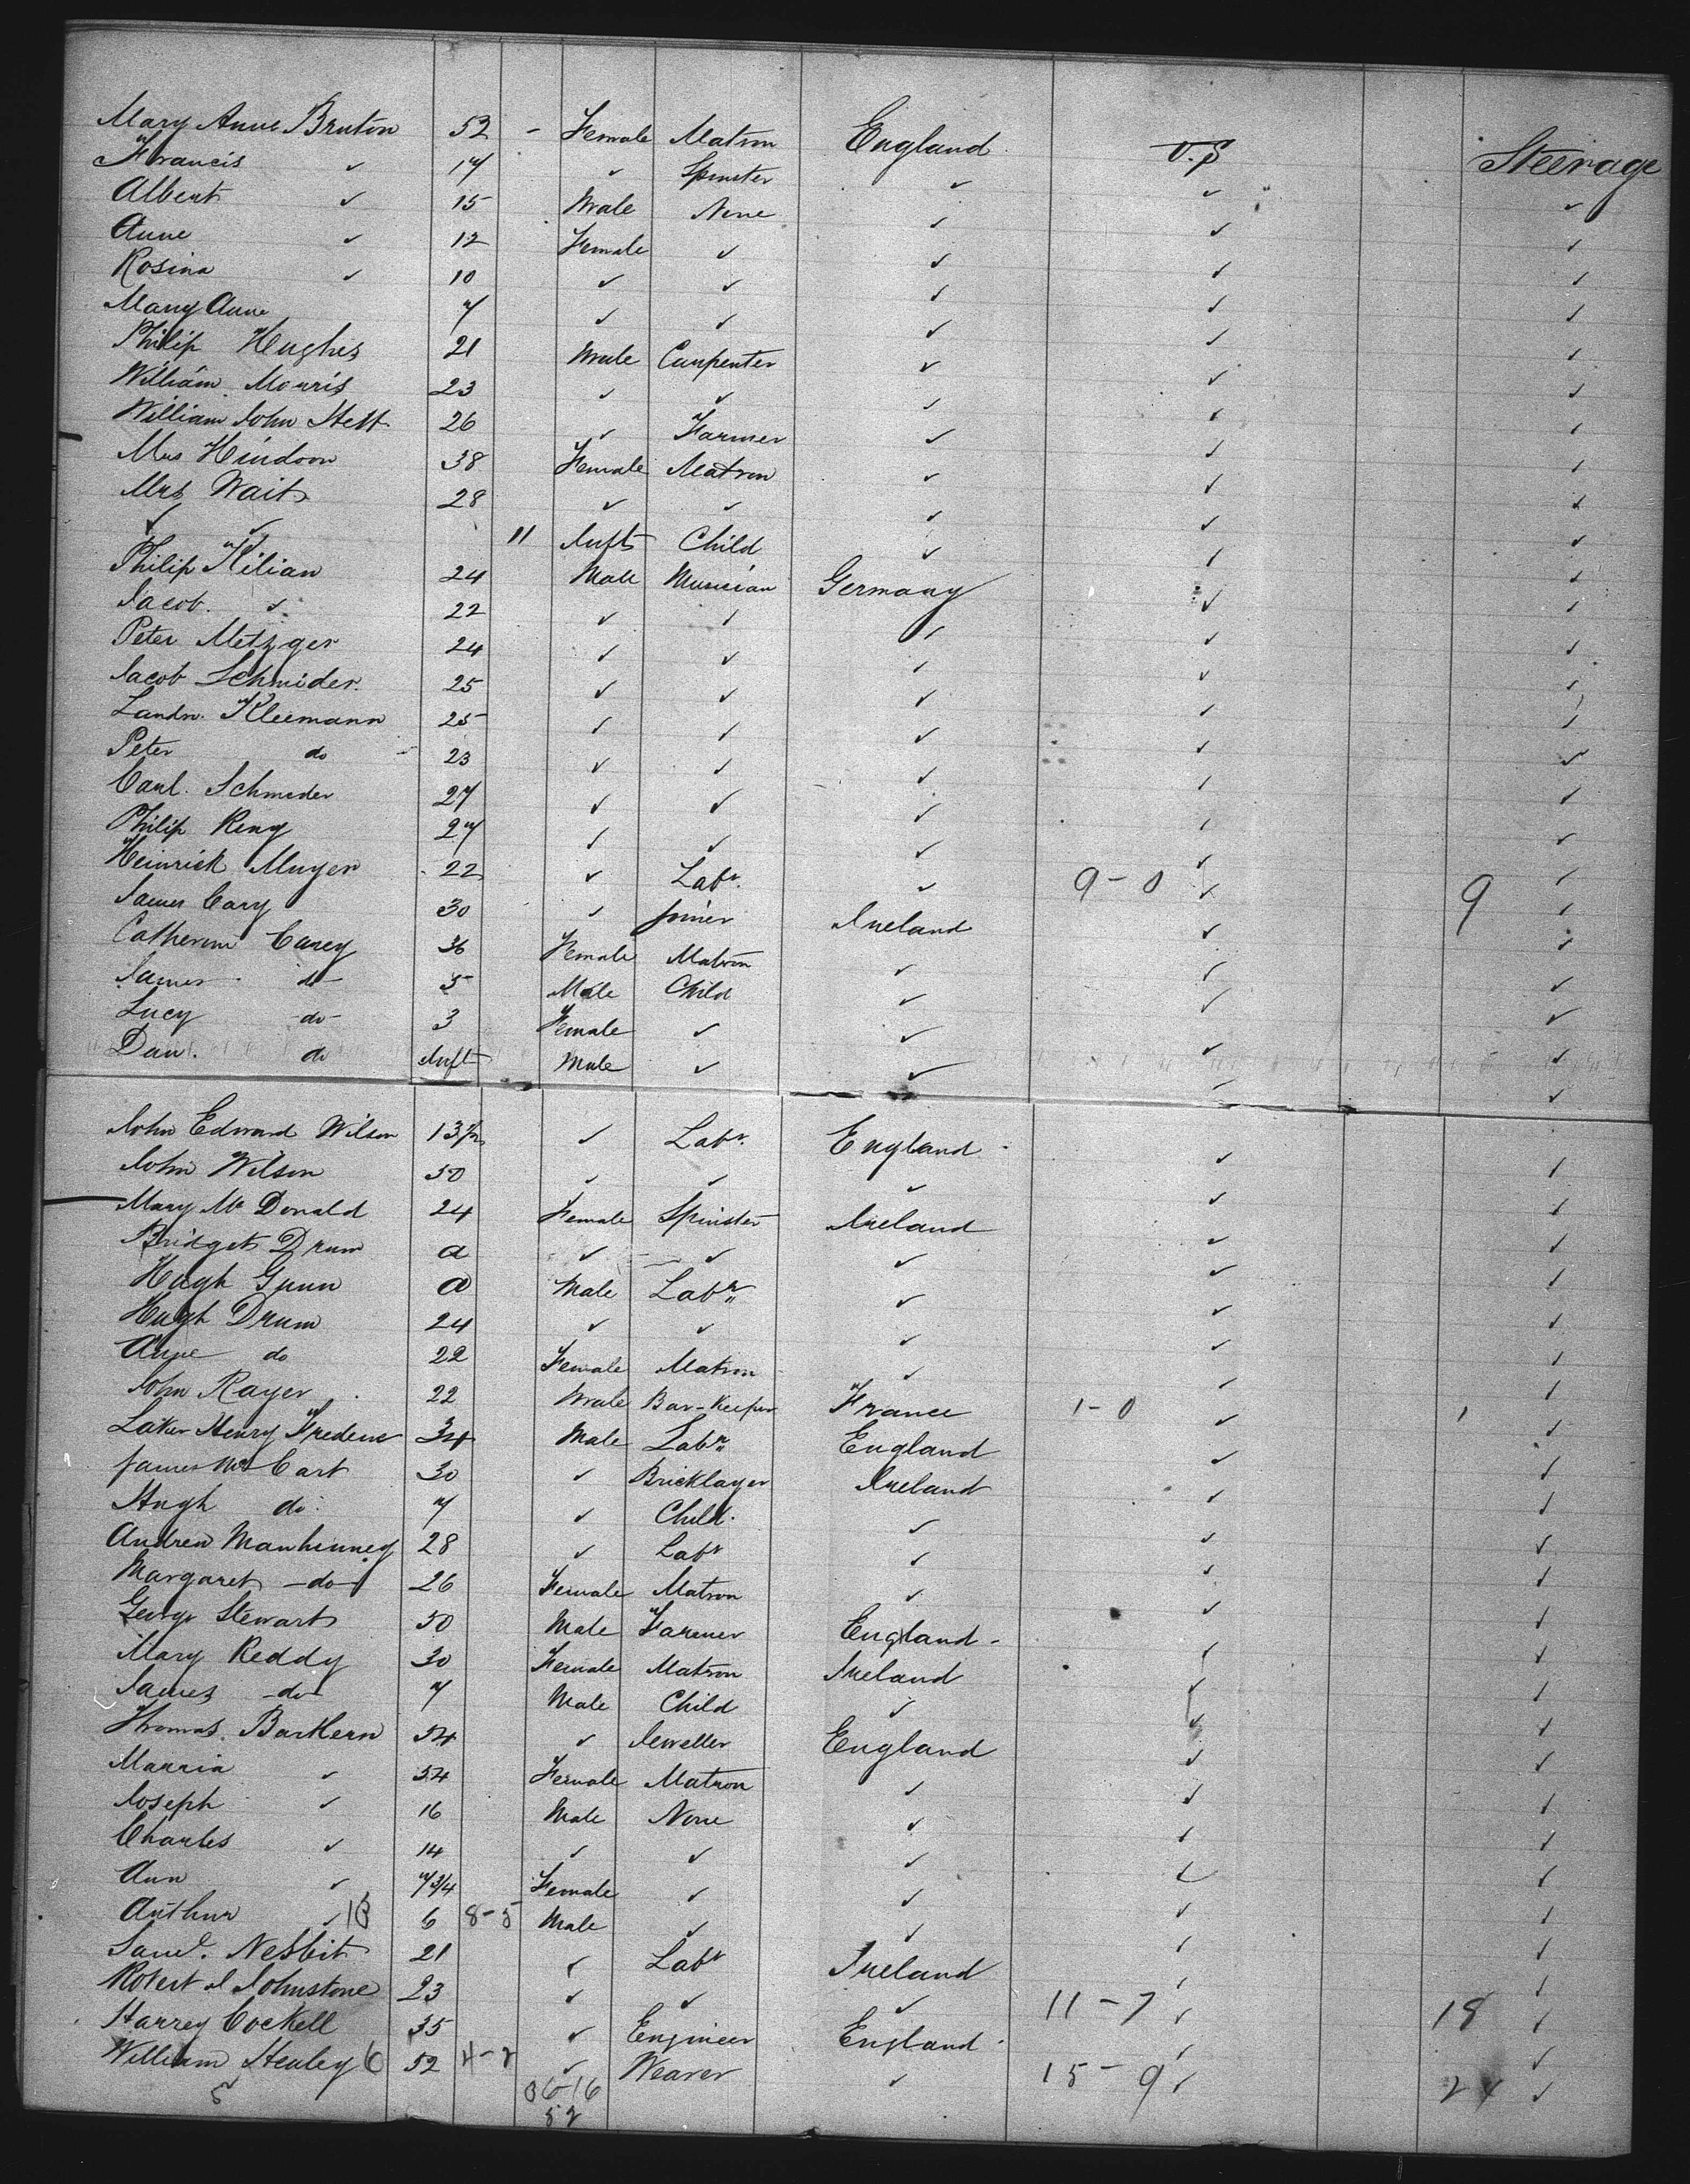 Mary Anne Bruton 52 - Female Matron England U.S Steerage
Francis ✓ 17 ✓ Spinster ✓ ✓ ✓
Albert ✓ 15 Male None ✓ ✓ ✓
Anne ✓ 12 Female ✓ ✓ ✓ ✓
Rosina ✓ 10 ✓ ✓ ✓ ✓ ✓
Mary Anne 7 ✓ ✓ ✓ ✓ ✓
Philip Hughes 21 Male Carpenter ✓ ✓ ✓
William Morris 23 ✓ ✓ ✓ ✓ ✓
William John 26 ✓ Farmer ✓ ✓ ✓
Mrs Hindoon 38 Female Matron ✓ ✓ ✓
Mrs Waits 28 ✓ ✓ ✓ ✓ ✓
✓ ✓ 11 Inft Child ✓ ✓ ✓
Philip Kilian 24 Male Musician Germany ✓ ✓
Jacob ✓ 22 ✓ ✓ ✓ ✓ ✓
Peter Metzger 24 ✓ ✓ ✓ ✓ ✓
Jacob Schmider 25 ✓ ✓ ✓ ✓ ✓
Landw. Kleemann 25 ✓ ✓ ✓ ✓ ✓
Peter do 23 ✓ ✓ ✓ ✓ ✓
Carl. Schmeder 27 ✓ ✓ ✓ ✓ ✓
Philip Reng 27 ✓ ✓ ✓ ✓ ✓
Heinrick Muyer 22 ✓ Labr. ✓ 9-0 ✓ 9 ✓
James Cary 30 ✓ Joiner Ireland ✓ ✓
Catherine Carey 36 Female Matron ✓ ✓ ✓
James do 5 Male Child ✓ ✓ ✓
Lucy -do- 3 Female ✓ ✓ ✓ ✓
Dan. do Inft Male ✓ ✓ ✓ ✓
John Edward Wilson 13½ ✓ Labr. England ✓ ✓
John Wilson 50 ✓ ✓ ✓ ✓ ✓
Mary Mc Donald 24 Female Spinster Ireland ✓ ✓
Bridget Drum a ✓ ✓ ✓ ✓ ✓
Hugh Gunn a Male Labr ✓ ✓ ✓
Hugh Drum 24 ✓ ✓ ✓ ✓ ✓
Anne do 22 Female Matron ✓ ✓ ✓
John Rayer 22 Male Bar-Keeper France 1-0 ✓ 1 ✓
Laker Henry Frederic 34 Male Labr England ✓ ✓
James Mc Cart 30 ✓ Bricklayer Ireland ✓ ✓
Hugh do. 7 ✓ Child. ✓ ✓ ✓
Andrew Manhinney 28 ✓ Labr ✓ ✓ ✓
Margaret -do- 26 Female Matron ✓ ✓ ✓
George Stewart 50 Male Farmer England - ✓ ✓
Mary Reddy 30 Female Matron Ireland ✓ ✓
James -do- 7 Male Child ✓ ✓ ✓
Thomas Barthern 54 ✓ Jeweller England ✓ ✓
Marria ✓ 54 Female Matron ✓ ✓ ✓
Joseph ✓ 16 Male None ✓ ✓ ✓
Charles ✓ 14 ✓ ✓ ✓ ✓ ✓
Ann ✓ 7 3/4 Female ✓ ✓ ✓ ✓
Arthur ✓ 13 6 8-5 Male ✓ ✓ ✓ ✓
Saml. Nesbit 21 ✓ Labr Ireland ✓ ✓
Robert J Johnstone 23 ✓ ✓ ✓ 11-7 ✓ 18 ✓
Harrey Cockell 35 ✓ Engineer England ✓ ✓
William Healey 6 52 4-2 ✓ Weaver ✓ 15-9 ✓ 24 ✓
5 36-16
52